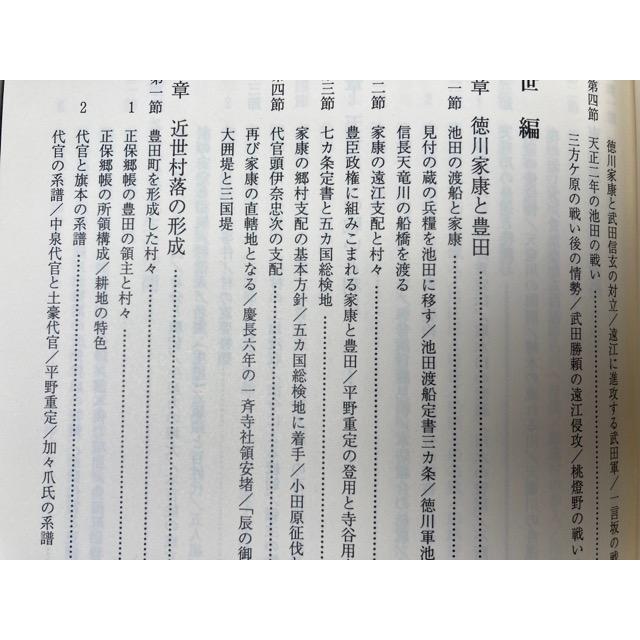 徳川家康と武田信玄の対立／遠江に進攻する武田軍／一言坂の戦
第四節 天正二年の池田の戦い
三方ケ原の戦い後の情勢／武田勝頼の遠江侵攻／桃燈野の戦い
世編
章 徳川家康と豊田
一節 池田の渡船と家康
見付の蔵の兵糧を池田に移す／池田渡船定書三カ条／徳川軍池
信長天竜川の船橋を渡る
二節 家康の遠江支配と村々
豊臣政権に組みこまれる家康と豊田／平野重定の登用と寺谷用
三節 七カ条定書と五カ国総検地
家康の郷村支配の基本方針／五カ国総検地に着手／小田原征伐と
四節 代官頭伊奈忠次の支配
再び家康の直轄地となる／慶長六年の一斉寺社領安堵／「辰の御
大囲堤と三国堤
章 近世村落の形成
第一節 豊田町を形成した村々
1 正保郷帳の豊田の領主と村々
正保郷帳の所領構成／耕地の特色
2 代官と旗本の系譜
代官の系譜／中泉代官と土豪代官／平野重定／加々爪氏の系譜